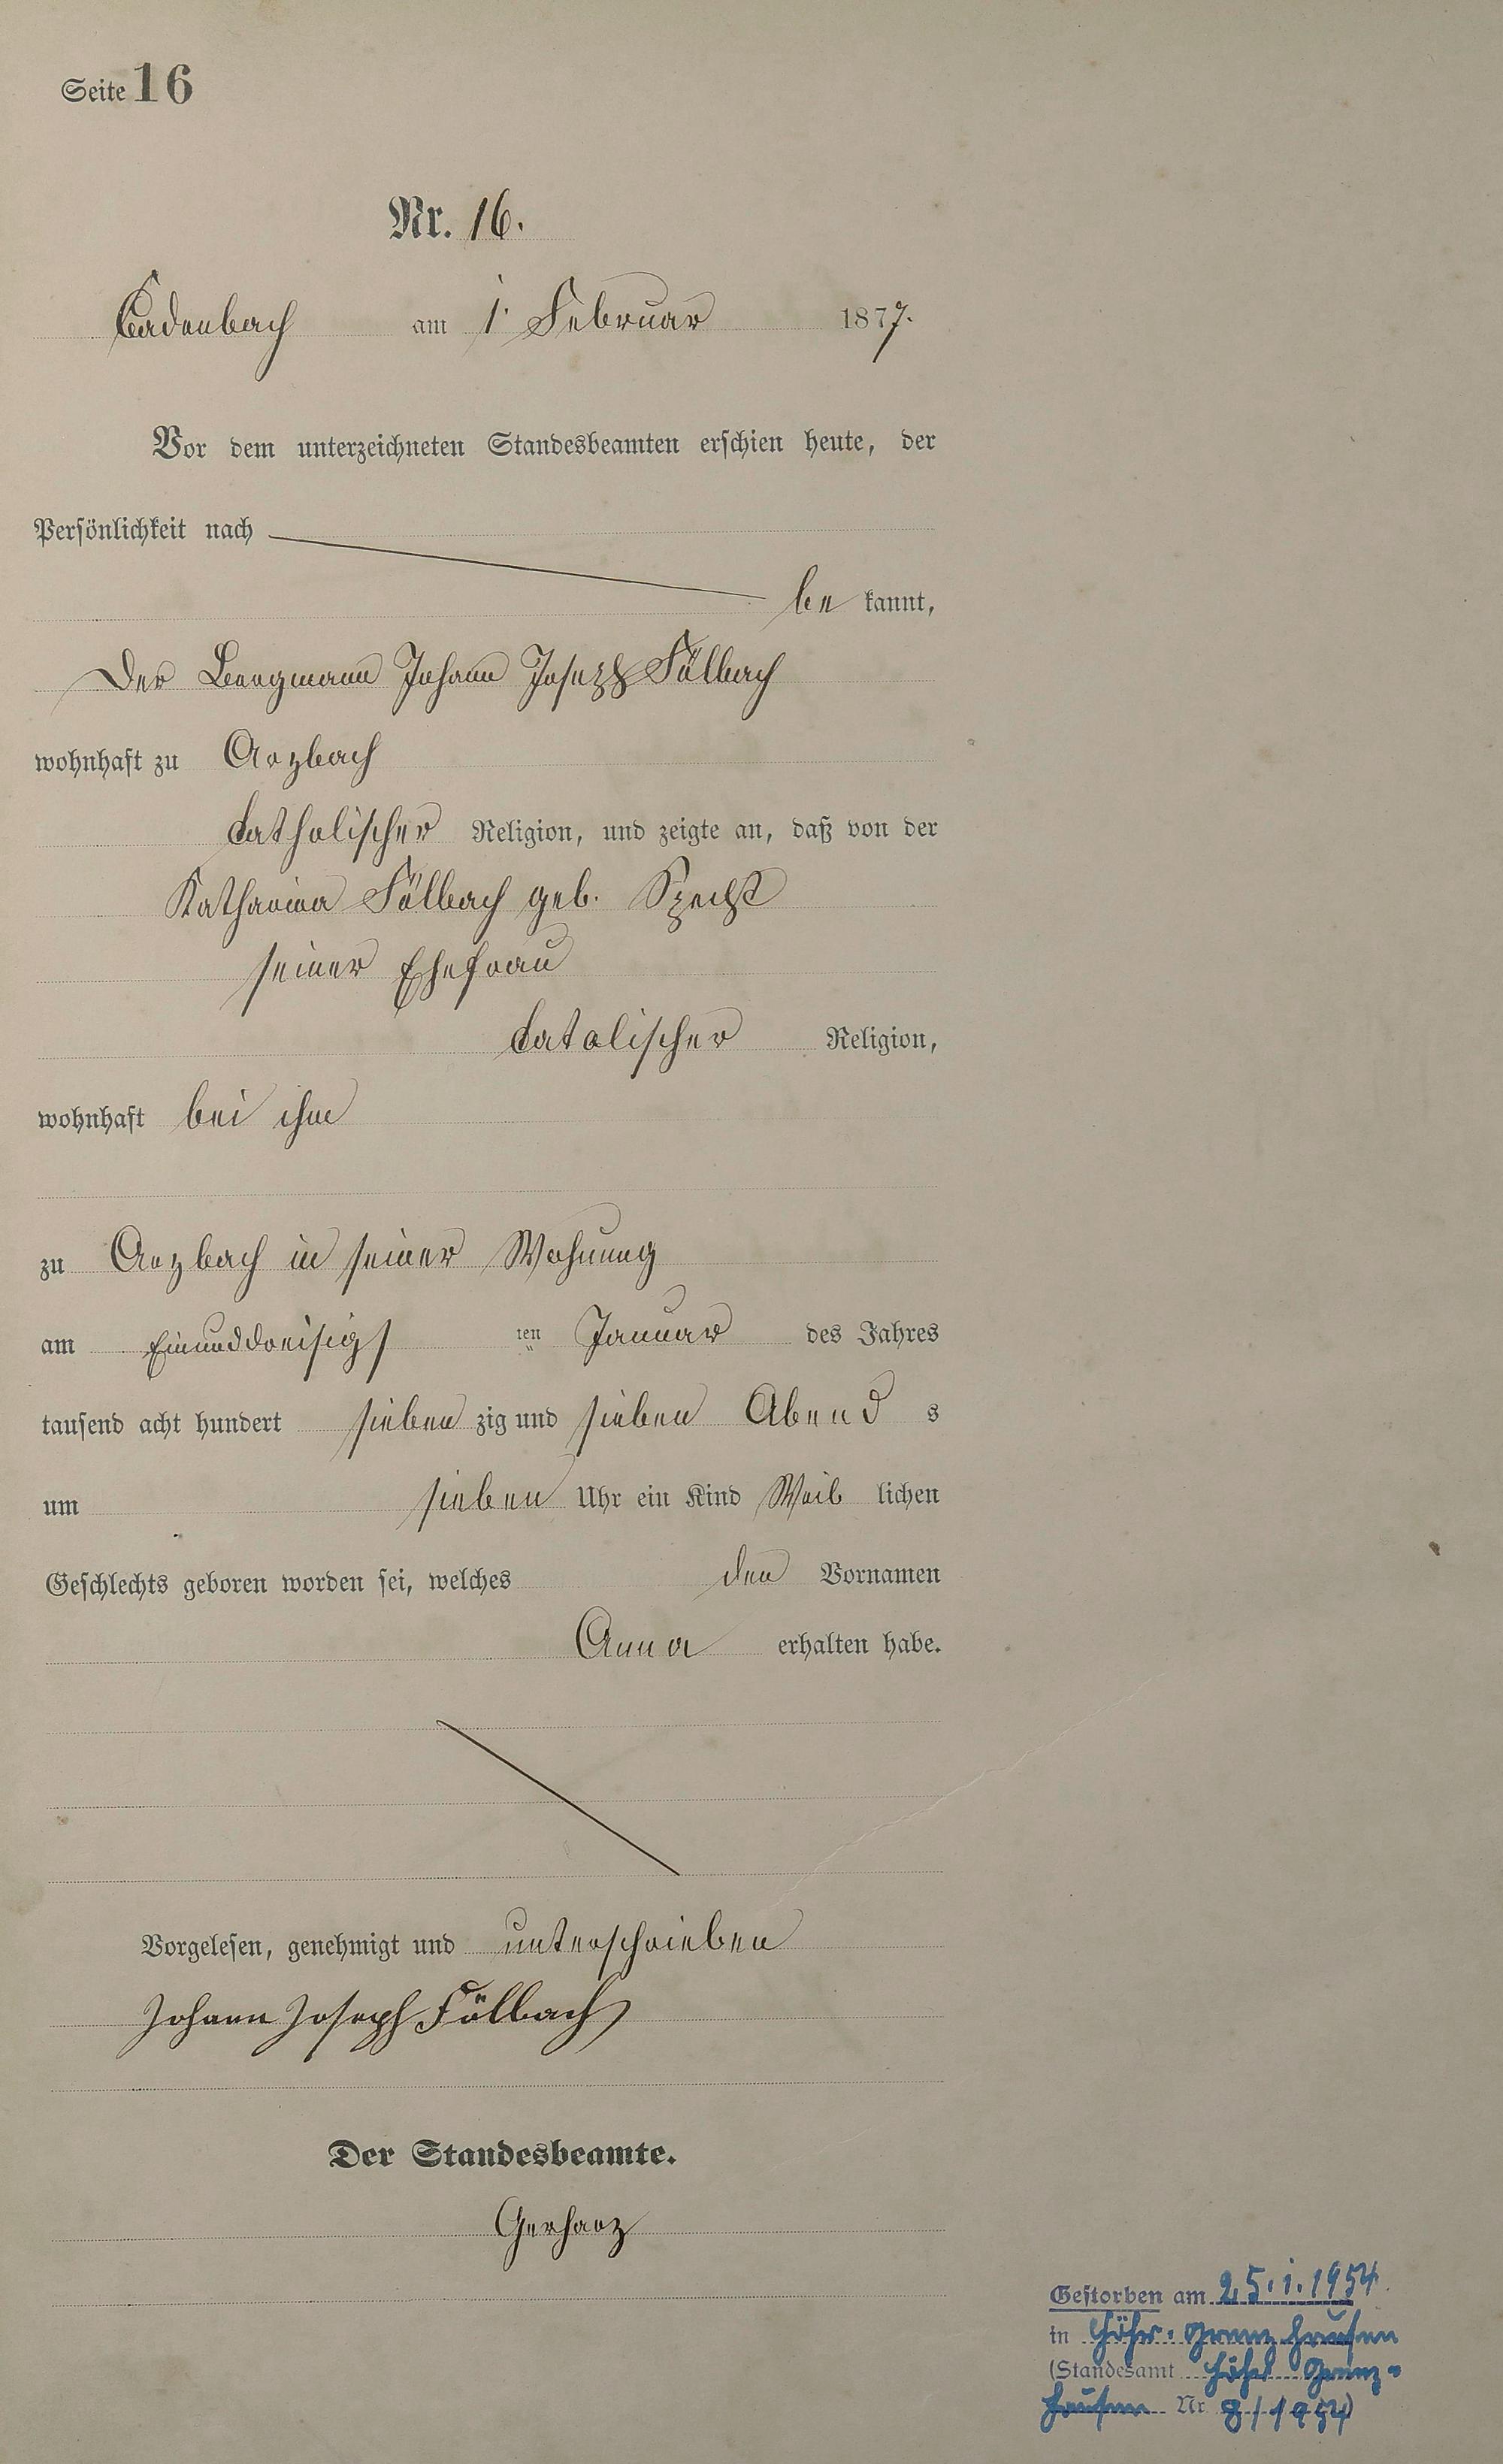 Seite 16
Nr. 16.
Cadenbach am 1. Februar 1877.
Vor dem unterzeichneten Standesbeamten erschien heute, der
Persönlichkeit nach
be kannt,
Der Bergmann Johann Joseph Fölbach
wohnhaft zu Arzbach
catholischer Religion, und zeigte an, daß von der
Katharina Fölbach geb. Specht
seiner Ehefrau
catolischer Religion,
wohnhaft bei ihm
zu Arzbach in seiner Wohnung
am Einunddreisigs ten Januar des Jahres
tausend acht hundert sieben zig und sieben Abend s
um sieben Uhr ein Kind Weib lichen
Geschlechts geboren worden sei, welches den Vornamen
Anna erhalten habe.
Vorgelesen, genehmigt und unterschrieben
Johann Joseph Fölbach
Der Standesbeamte.
Gerharz
Gestorben am 25.1.1954
in Höhr-Grenzhausen
(Standesamt Höhr Grenz-
hausen Nr 8/1954)